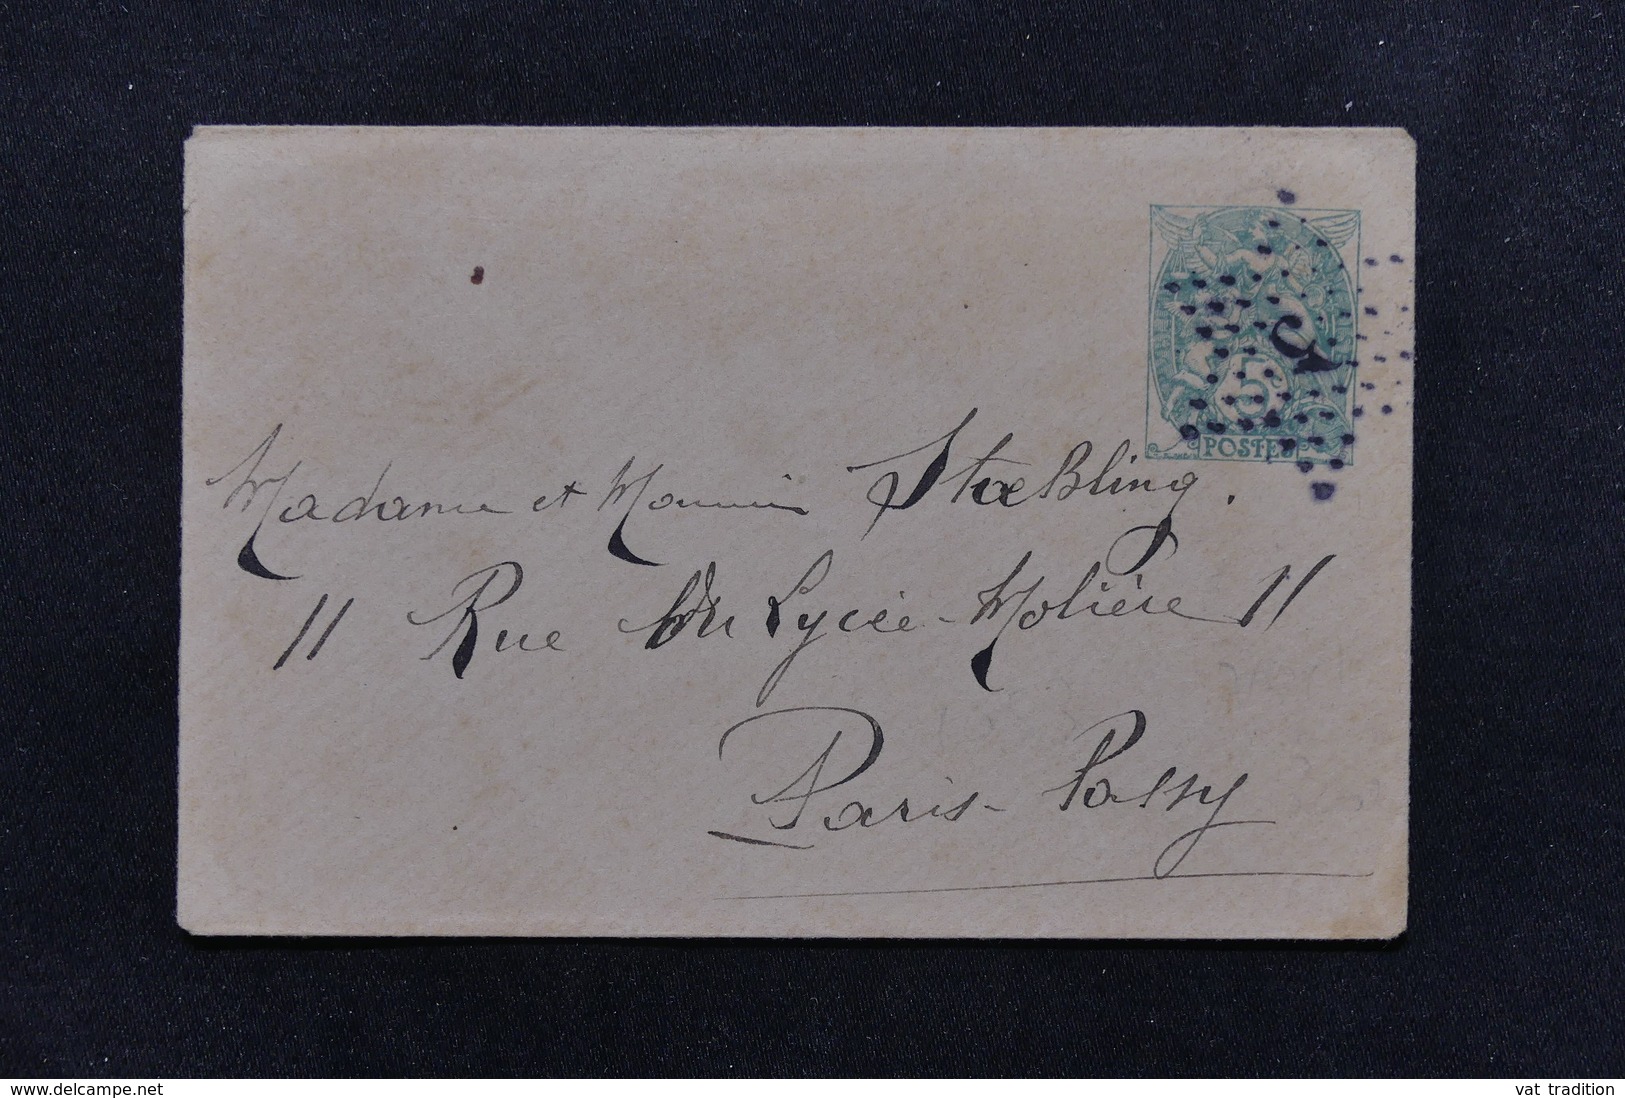 5
POSTES
Madame et Monsieur Stœbling.
11 Rue du Lycée-Molière 11
Paris-Passy
www.delcampe.net
vat_tradition